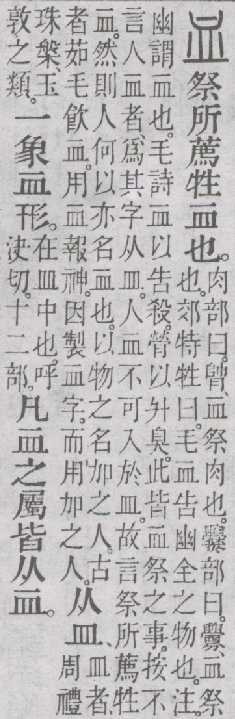 血祭所薦牲血也。肉部曰。膋、血祭肉也。爨部曰。釁、血祭
也。郊特牲曰。毛血告幽全之物也。注
幽謂血也。毛詩血以告殺。膋以升臭。此皆血祭之事。按不
言人血者、爲其字从皿。人血不可入於皿。故言祭所薦牲
血。然則人何以亦名血也。以物之名加之人。古
者茹毛飮血。用血報神。因製血字。而用加之人。
从皿。皿者、
周禮
珠槃、玉
敦之類。
一象血形。在皿中也。呼
決切。十二部。
凡血之屬皆从血。